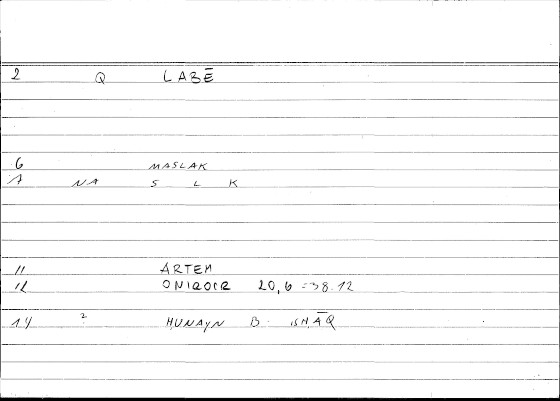 2 Q LABĒ
6 MASLAK
7 NA S L K
11 ARTEM
12 ONIROCR 20,6 = 38.12
14 2 HUNAYN B. ISHĀQ